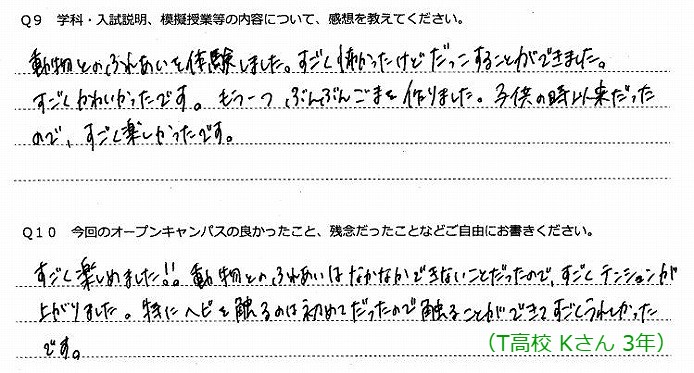 Q9 学科・入試説明、模擬授業等の内容について、感想を教えてください。
動物とのふれあいを体験しました。すごく怖かったけどだっこすることができました。
すごくかわいかったです。もう一つ ぶんぶんごまを作りました。子供の時以来だった
ので、すごく楽しかったです。
Q10 今回のオープンキャンパスの良かったこと、残念だったことなどご自由にお書きください。
すごく楽しめました!!。動物とのふれあいはなかなかできないことだったので、すごくテンションが
上がりました。特にヘビを触るのは初めてだったので触ることができてすごくうれしかった
です。
（T高校 Kさん 3年）